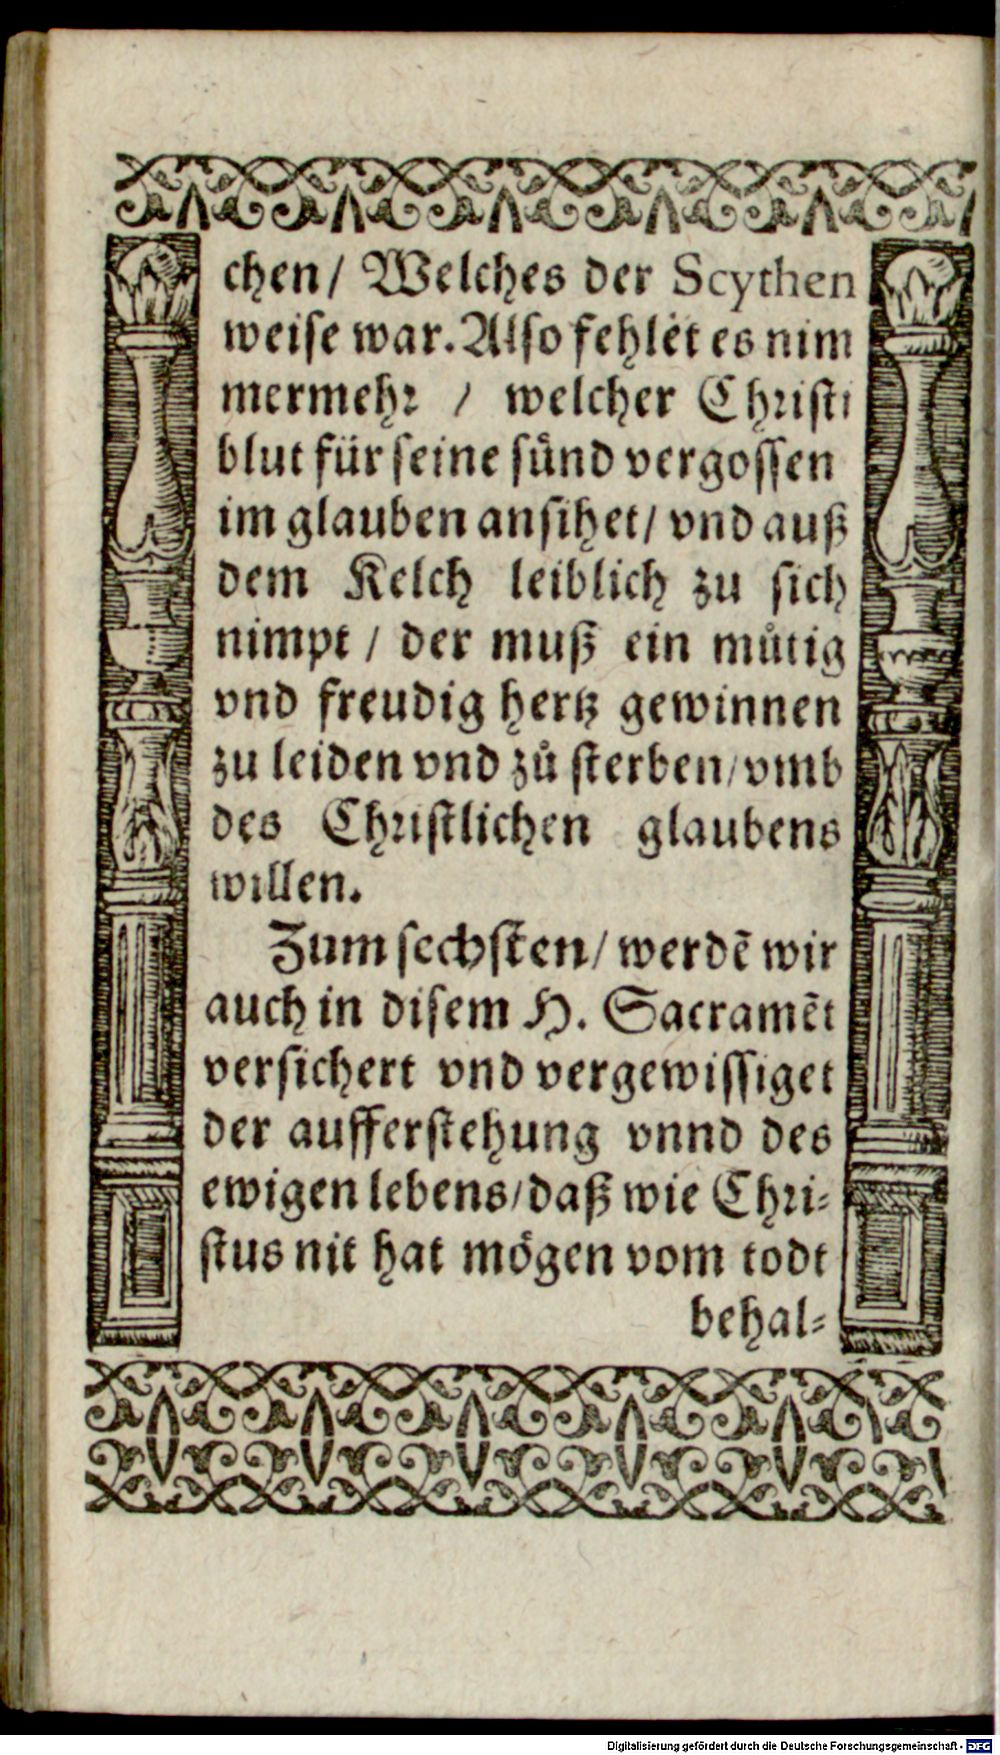 chen/ Welches der Scythen
weise war. Also fehlët es nim
mermehr / welcher Christi
blut für seine sünd vergossen
im glauben ansihet/ vnd auß
dem Kelch leiblich zu sich
nimpt / der muß ein můtig
vnd freudig hertz gewinnen
zu leiden vnd zů sterben/ vmb
des Christlichen glaubens
willen.
Zum sechsten/ werdē wir
auch in disem H. Sacramēt
versichert vnd vergewissiget
der aufferstehung vnnd des
ewigen lebens/ daß wie Chri=
stus nit hat mögen vom todt
behal=
Digitalisierung gefördert durch die Deutsche Forschungsgemeinschaft - DFG